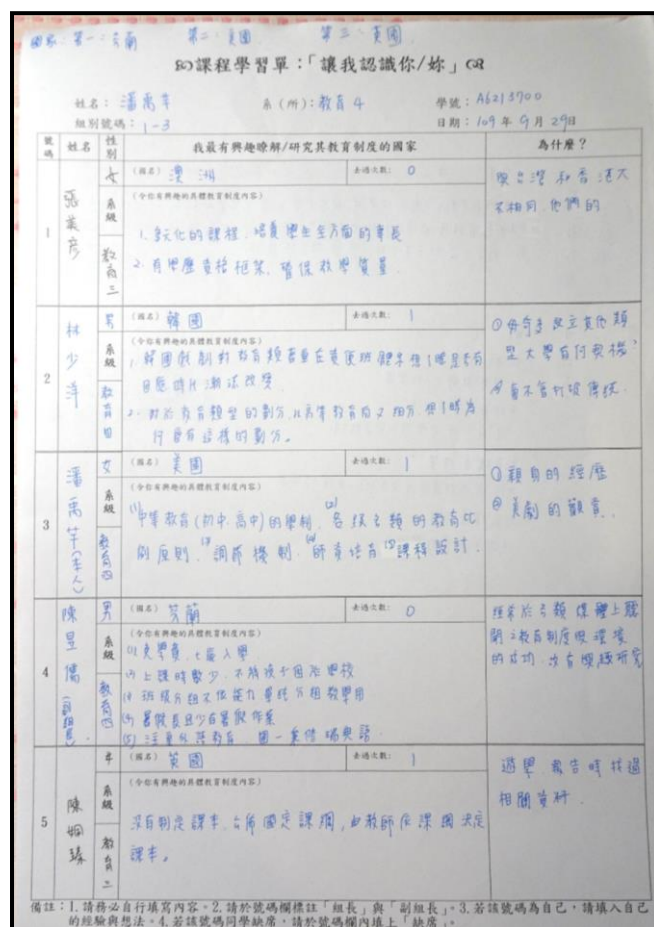 國家:第一:芬蘭 第二:美國 第三:英國
課程學習單:「讓我認識你/妳」
姓名:潘禹芊 系(所):教育4 學號:A6213700
組別號碼:1-3 日期:109年9月29日
號碼 姓名 性別 我最有興趣瞭解/研究其教育制度的國家 為什麼?
1 張義彥 女 系級 教育三
(國名) 澳洲 去過次數: 0
(令你有興趣的具體教育制度內容)
1. 多元化的課程,培養學生全方面的專長
2. 有學歷資格框架,確保教學質量
與台灣和香港大
不相同,他們的
2 林少洋 男 系級 教育四
(國名) 韓國 去過次數: 1
(令你有興趣的具體教育制度內容)
1. 韓國戲劇對教育類著重在
因應時代潮流改變
2. 對於教育類型的劃分,比高等教育的 相分 想了解為
何會有這樣的劃分。
①好奇 設立其他類
型大學有何契機?
會不會打破傳統.
3 潘禹芊(本人) 女 系級 教育四
(國名) 美國 去過次數: 1
(令你有興趣的具體教育制度內容)
(1)中等教育(初中.高中)的學制. (2)各級各類的教育比
例原則. (3)調節機制. (4)師資培育 (5)課程設計.
①親身的經歷
②美劇的觀賞.
4 陳昱儒(副組長) 男 系級 教育四
(國名) 芬蘭 去過次數: 0
(令你有興趣的具體教育制度內容)
(1) 免學費,七歲入學
(2) 上課時數少,
班級分組不依能力
(4) 暑假長且少有暑假作業
(5) 注重外語教育
經常於各類媒體上聽
聞之教育制度與環境
的成功,沒有 研究
5 陳姵臻 系級 教育三
(國名) 英國 去過次數: 1
(令你有興趣的具體教育制度內容)
沒有制定課本,公佈國定課綱,由教師依課綱決定
課本。
遊學.報告時找過
相關資料.
備註:1.請務必自行填寫內容。2.請於號碼欄標註「組長」與「副組長」。3.若該號碼為自己,請填入自己
的經驗與想法。4.若該號碼同學缺席,請於號碼欄內填上「缺席」。